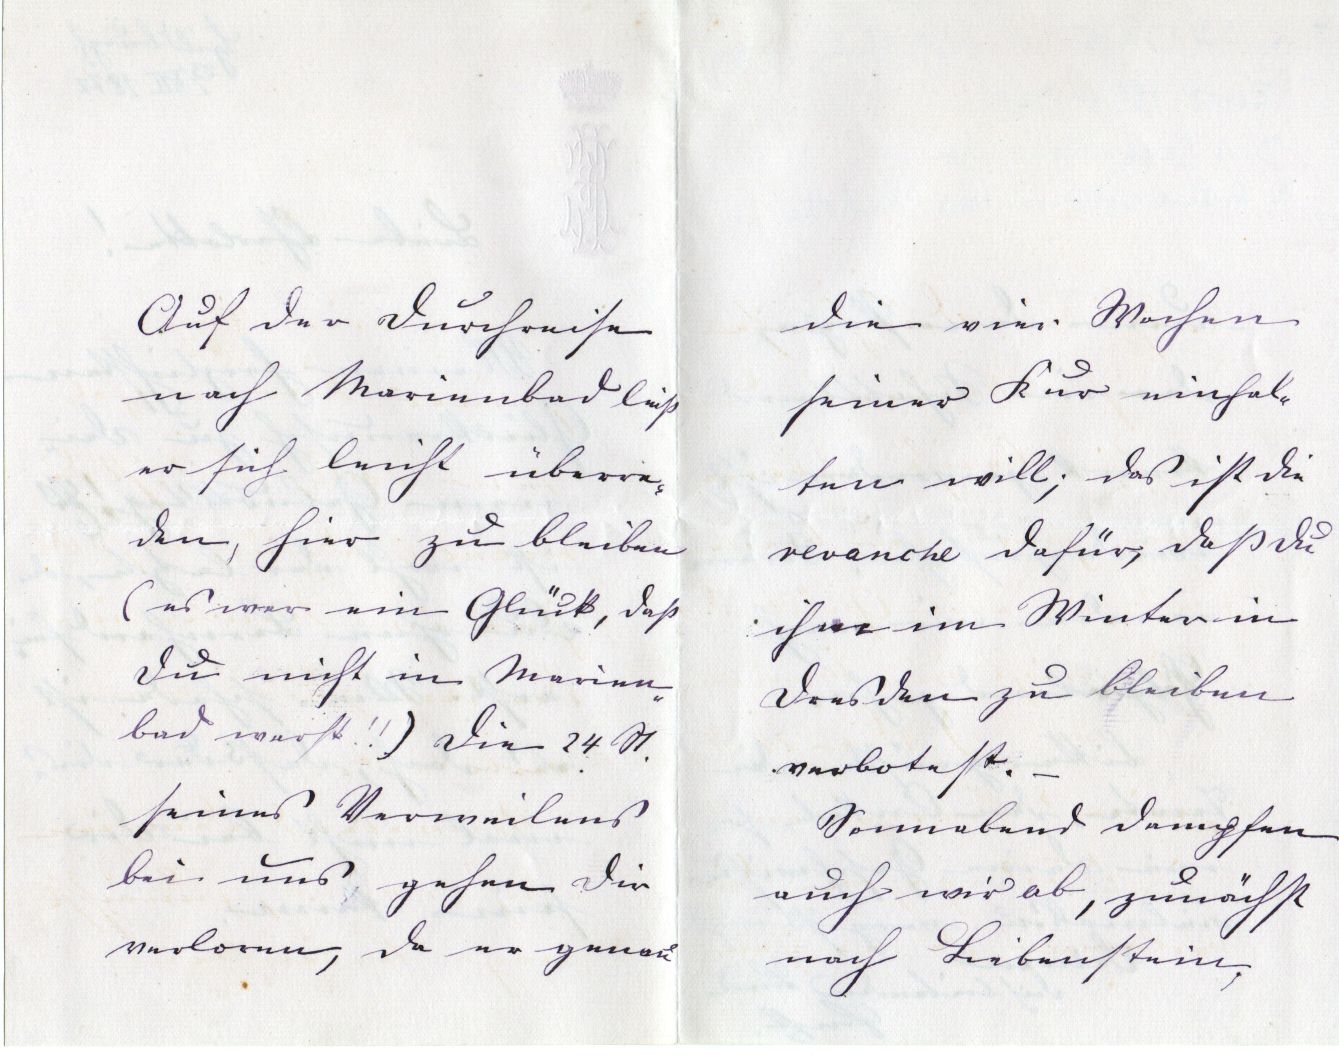 Auf der Durchreise
nach Marienbad ließ
er sich leicht überre-
den, hier zu bleiben
(es war ein Glück, daß
Du nicht in Marien-
bad warst!!) Die 24 St.
seines Verweilens
bei uns gehen Dir
verloren, da er genau
die vier Wochen
seiner Kur einhal-
ten will; das ist die
revanche dafür, daß Du
ihm im Winter in
Dresden zu bleiben
verbotest. –
Sonnabend dampfen
auch wir ab, zunächst
nach Liebenstein,